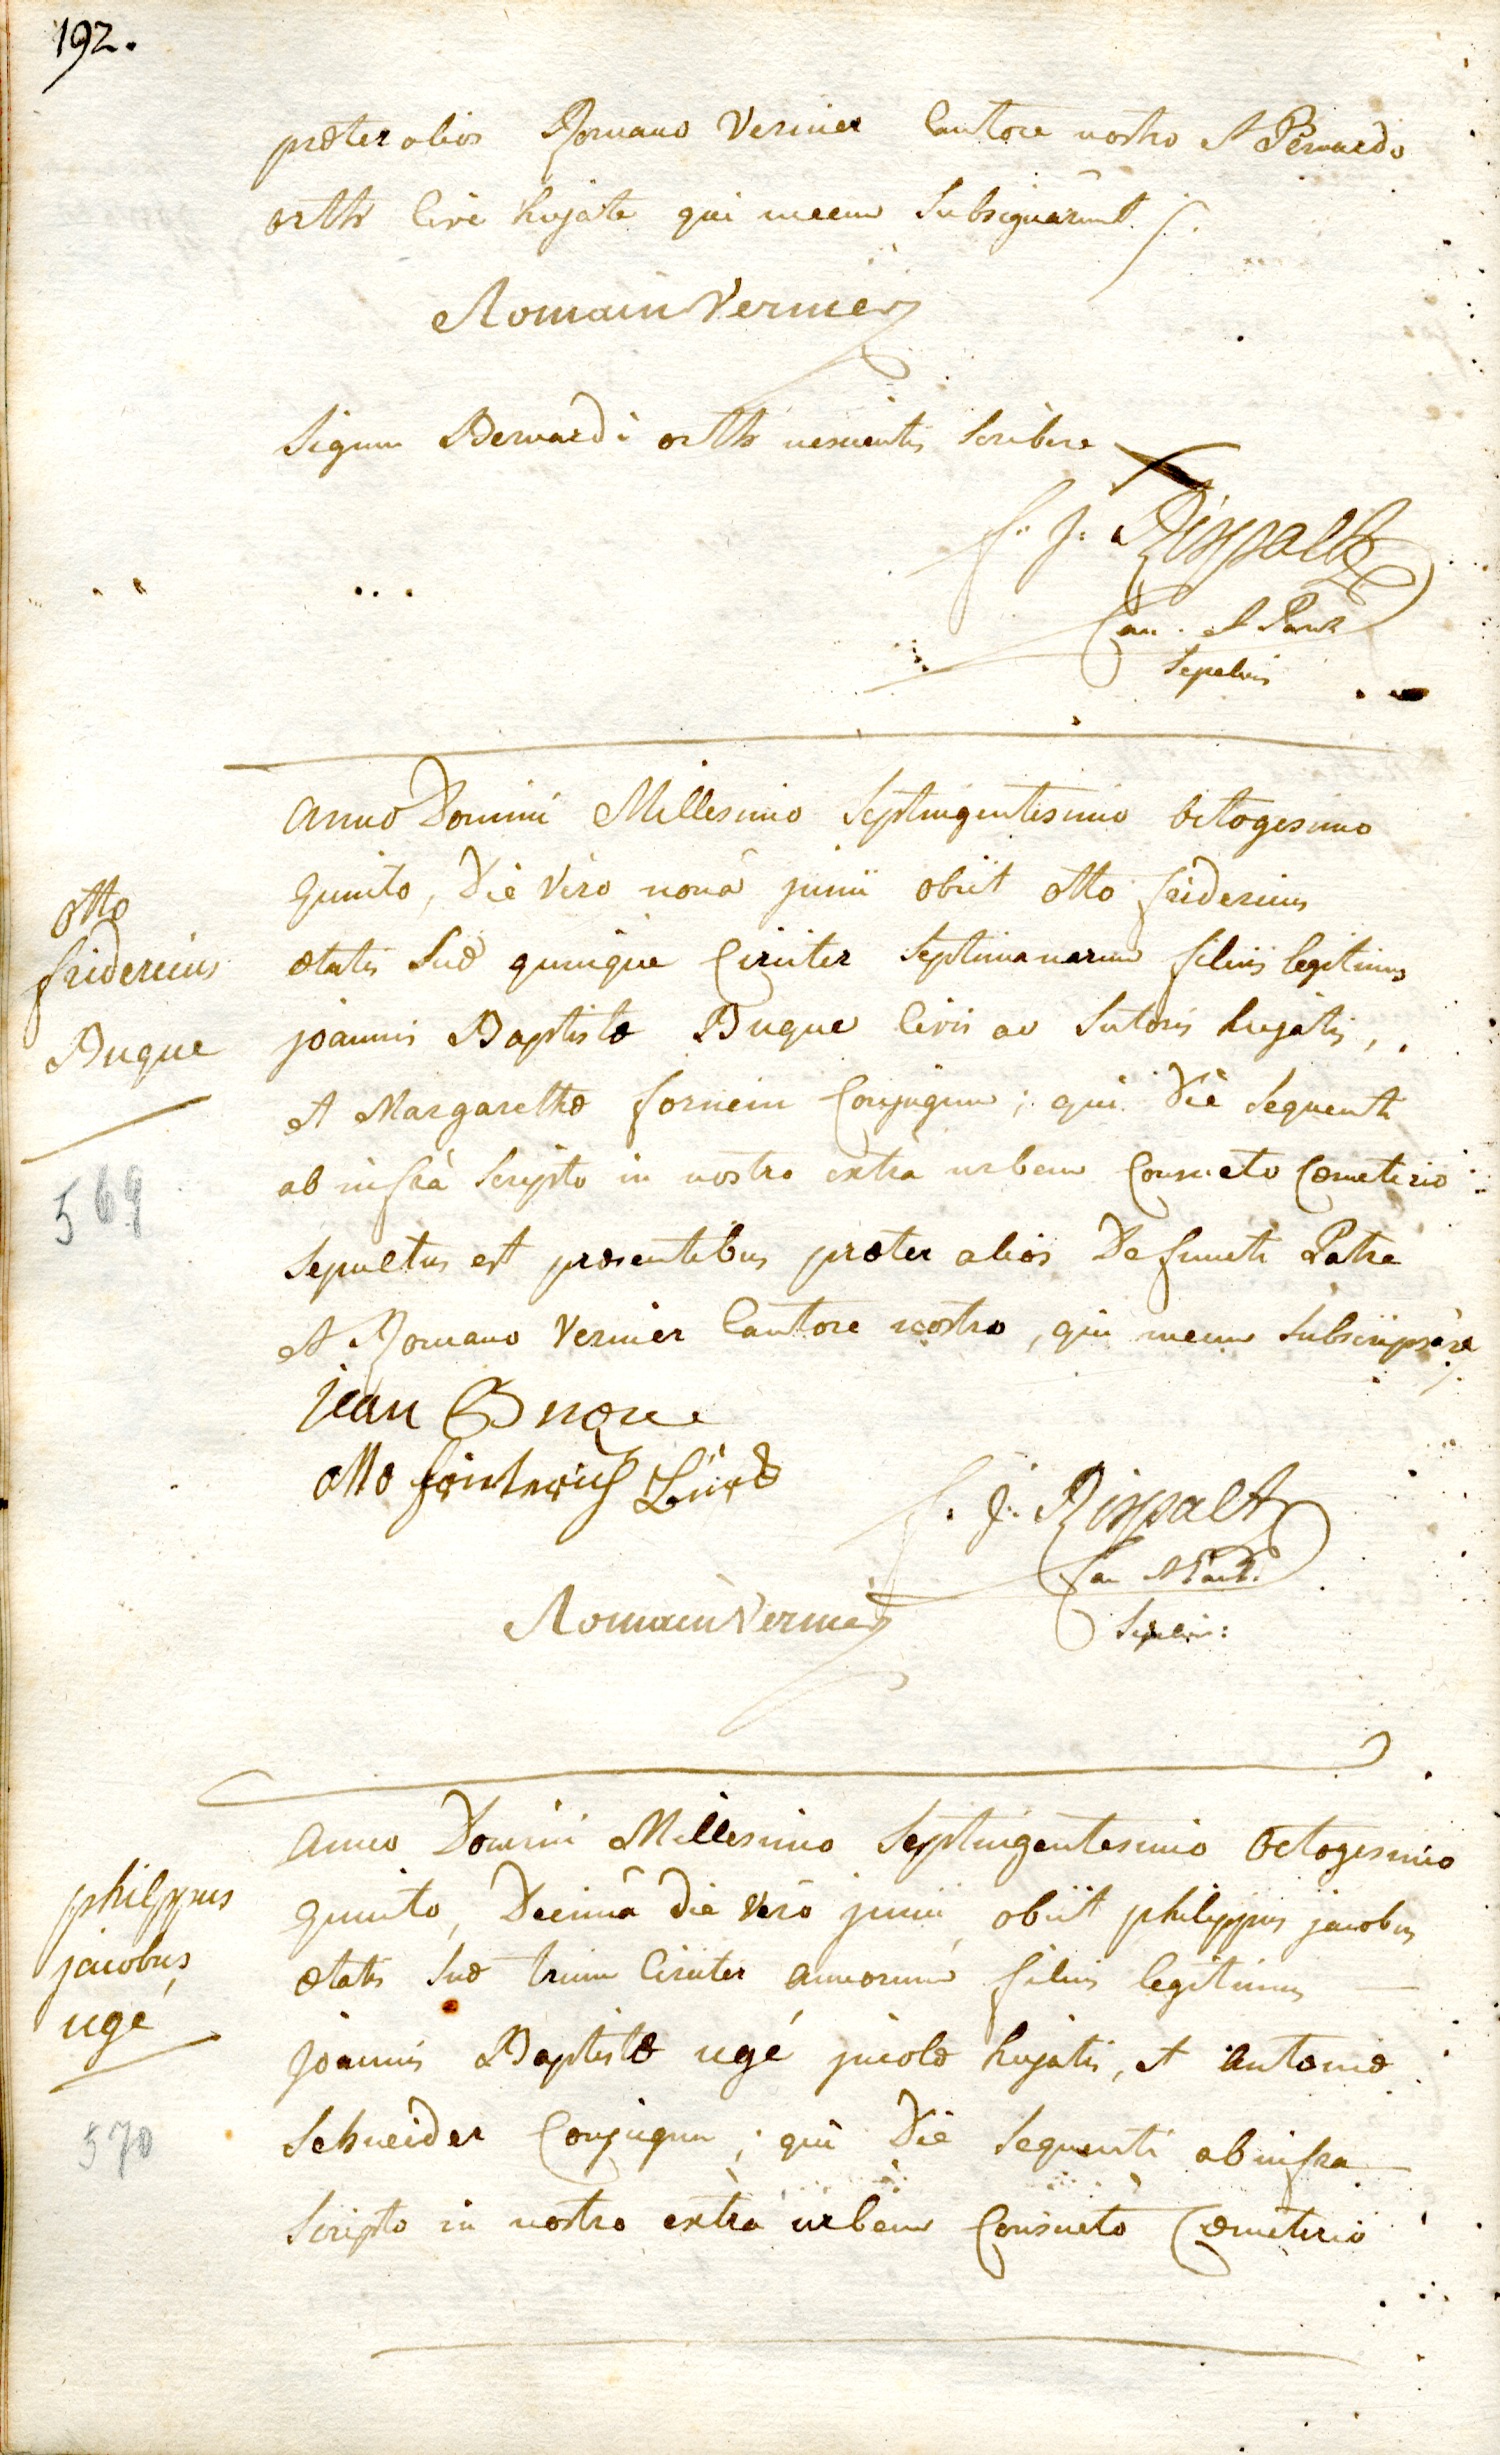 192.
præter alios Romano Vernier Cantore nostro et Bernardo
orth Cive hujate qui mecum Subsignarunt ./.
Romain Vernier
Signum Bernardi orth nescientis Scribere
f. j. Rippalt
Can. et Paroch
Sepelivi
Anno Domini Millesimo Septingentesimo octogesimo
Quinto, Die Vero nonâ junii obiit otto fridericus
ætatis Suæ quinque Circiter Septimanarum filius legitimus
joannis Baptistæ Buque Civis ac Sutoris hujatis,
et Margarethæ fornein Conjugum; qui Die Sequenti
ab infrà Scripto in nostro extrà urbem Consueto Cœmeterio
Sepultus est præsentibus præter alios Defuncti Patre
et Romano Vernier Cantore nostro, qui mecum Subscripsêre ./.
otto
fridericus
Buque
569
jean Buque
otto friderich
f. j. Rippalt
Can et Paroch.
Sepelivi:
Romain Vernier
Anno Domini Millesimo Septingentesimo Octogesimo
Quinto, Decimâ die Verò junii, obiit philippus jacobus
ætatis Suæ trium Circiter annorum filius legitimus —
joannis Baptistæ ugé incolæ hujatis, et Antoniæ
Schneider Conjugum; qui Die Sequenti ab infra
Scripto in nostro extrà urbem Consueto Cœmeterio
philppus
jacobus
ugé
570